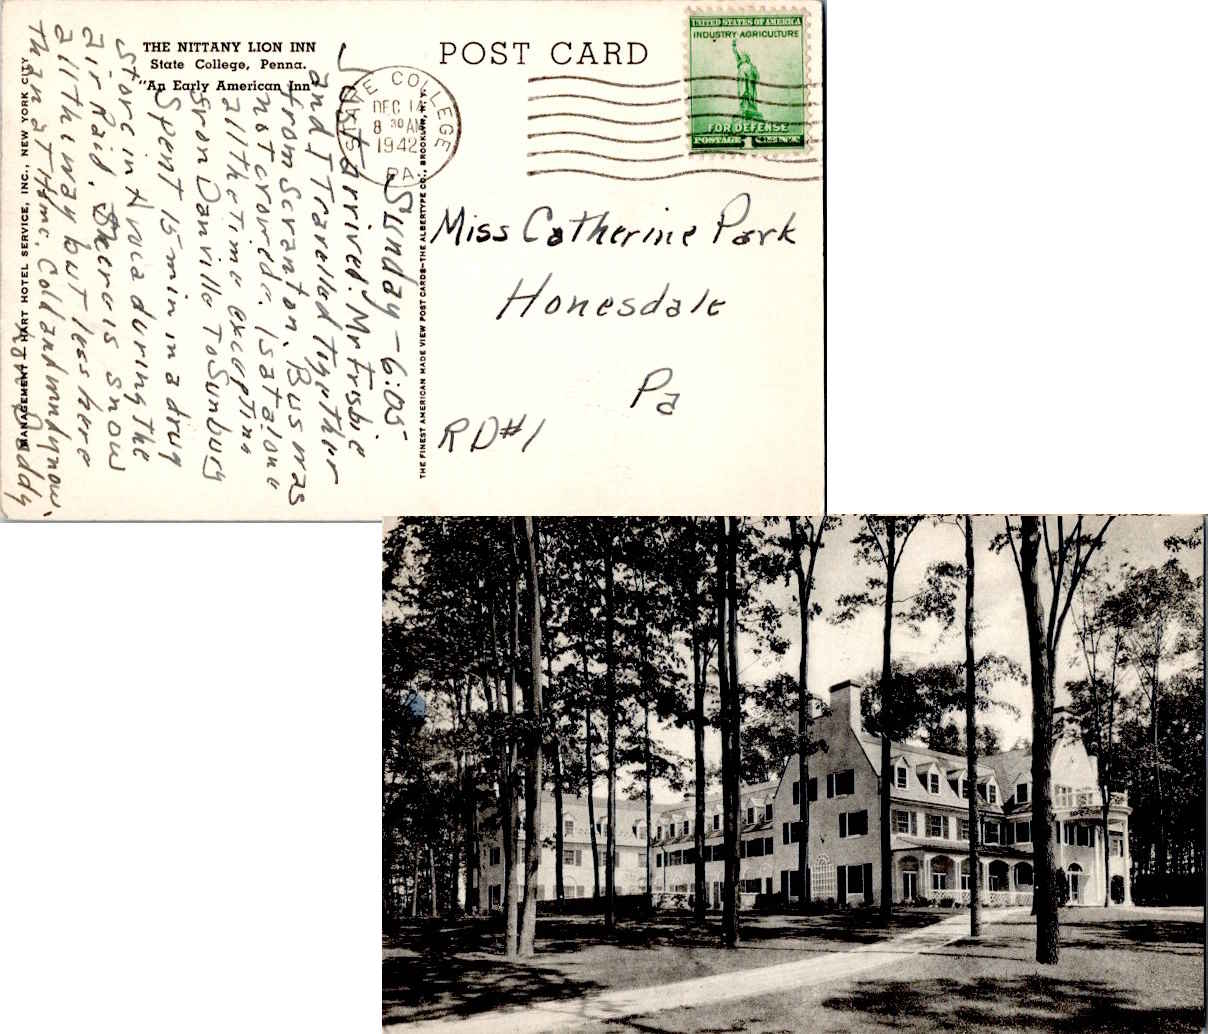 THE NITTANY LION INN
State College, Penna.
"An Early American Inn"
POST CARD
UNITED STATES OF AMERICA
INDUSTRY·AGRICULTURE
FOR DEFENSE
POSTAGE 1 CENT
STATE COLLEGE
DEC 14
8 30 AM
1942
PA.
Miss Catherine Park
Honesdale
Pa
RD#1
Sunday - 6:05
Just arrived. Mr Frisbie
and I Travelled together
from Scranton. Bus was
not crowded. I sat alone
all the time excepting
from Danville To Sunbury
Spent 15 min in a drug
store in Avoca during the
air Raid. There is snow
all the way but less here
than at Home. Cold and windy now.
Love Daddy
MANAGEMENT—HART HOTEL SERVICE, INC., NEW YORK CITY
THE FINEST AMERICAN MADE VIEW POST CARDS—THE ALBERTYPE CO., BROOKLYN, N.Y.